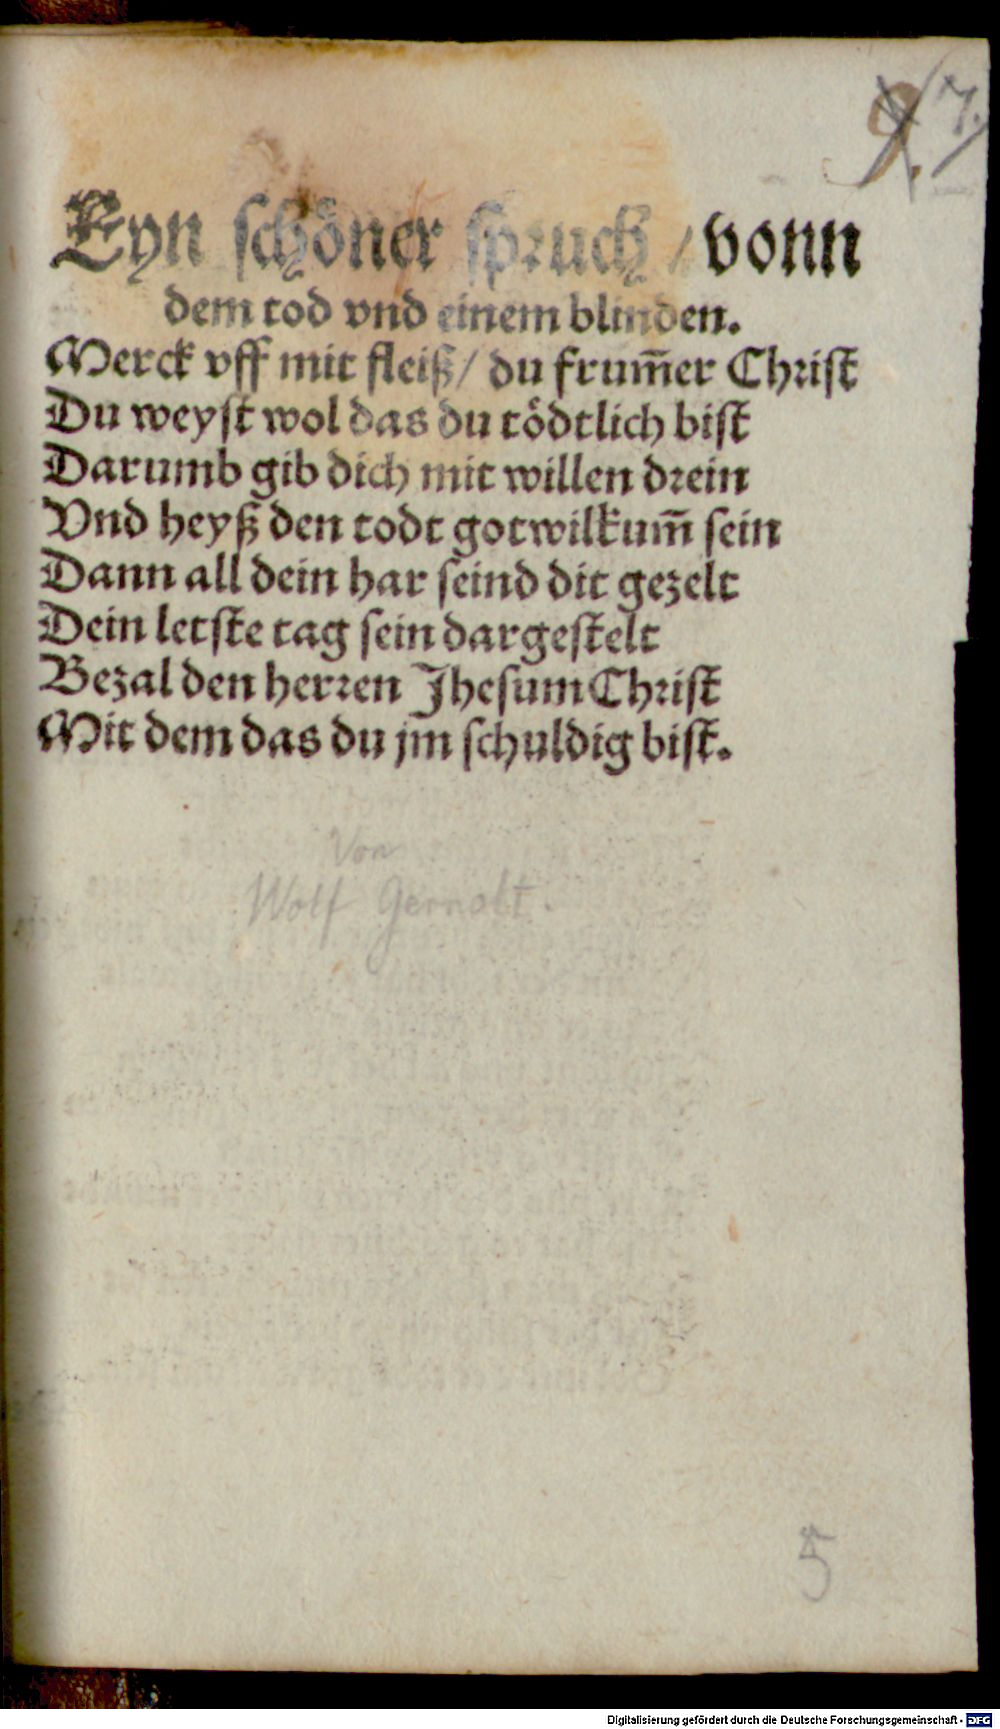 9. 7.
Eyn schöner spruch / vonn
dem tod vnd einem blinden.
Merck vff mit fleiß / du frum̄er Christ
Du weyst wol das du tödtlich bist
Darumb gib dich mit willen drein
Vnd heyß den todt gotwilkum̄ sein
Dann all dein har seind dir gezelt
Dein letste tag sein dargestelt
Bezal den herren Jhesum Christ
Mit dem das du jm schuldig bist.
Von
Wolf Gernolt.
5
Digitalisierung gefördert durch die Deutsche Forschungsgemeinschaft - DFG